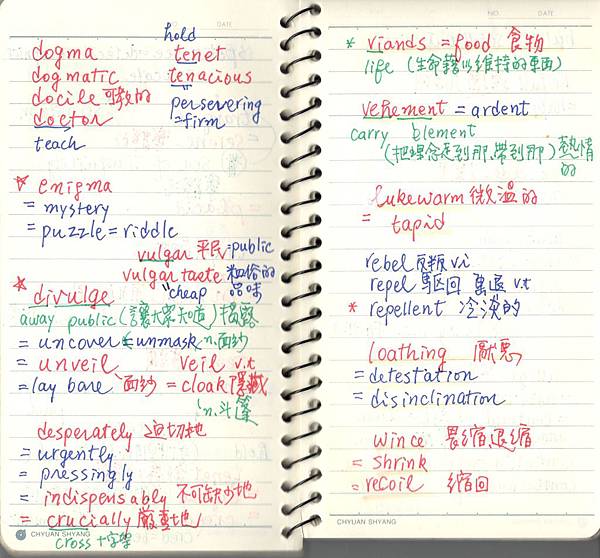 hold
dogma tenet
dogmatic tenacious
docile 可教的 persevering
doctor =firm
teach
* enigma
= mystery
= puzzle = riddle
vulgar 平民=public
vulgar taste 粗俗的品味
* divulge "cheap
away public (讓大眾知道) 揭露
= uncover = unmask n.面紗
= unveil veil v.t
= lay bare 面紗 = cloak 隱藏
n.斗篷
desperately 迫切地
= urgently
= pressingly
= indispensably 不可缺少地
= crucially 嚴重地
cross 十字架
CHYUAN SHYANG
NO. DATE
* viands = food 食物
life (生命藉以維持的東西)
vehement = ardent
carry blement
(把理念走到那,帶到那) 熱情的
lukewarm 微溫的
= tapid
rebel 反叛 vi
repel 駆回 擊退 v.t
* repellent 冷淡的
loathing 厭惡
= detestation
= disinclination
wince 畏縮,退縮
= shrink
= recoil 縮回
CHYUAN SHYANG